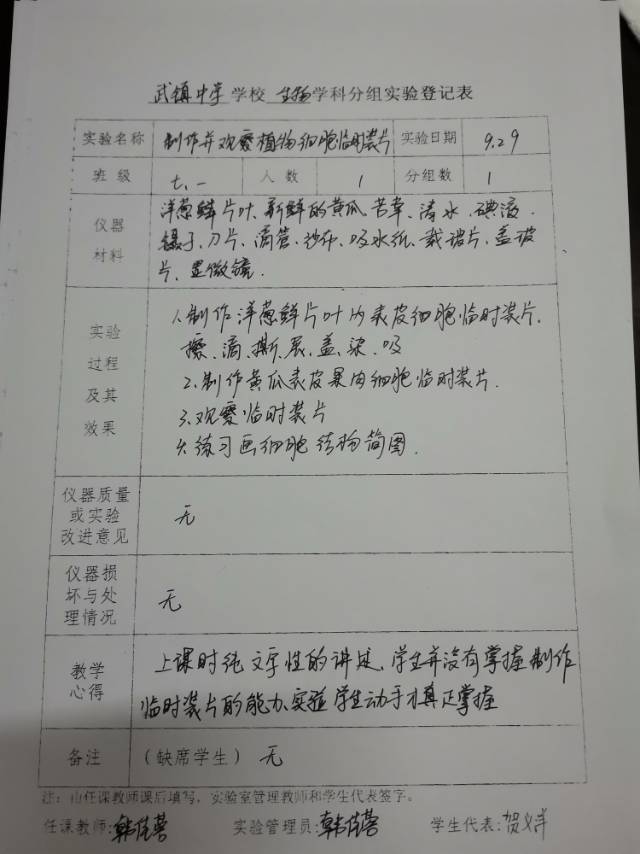 武镇中学学校 生物学科分组实验登记表
实验名称 制作并观察植物细胞临时装片 实验日期 9.29
班 级 七.一 人 数 1 分组数 1
仪器材料
洋葱鲜片叶、新鲜的黄瓜、苦草、清水、碘液、
镊子、刀片、滴管、纱布、吸水纸、载玻片、盖玻
片、显微镜.
实验过程及其效果
1.制作洋葱鲜片叶内表皮细胞临时装片.
擦、滴、撕、展、盖、染、吸
2.制作黄瓜表皮果肉细胞临时装片.
3.观察临时装片
4.练习画细胞结构简图.
仪器质量或实验改进意见
无
仪器损坏与处理情况
无
教学心得
上课时纯文字性的讲述、学生并没有掌握制作
临时装片的能力、实验学生动手才真正掌握
备注 (缺席学生) 无
注:由任课教师课后填写,实验室管理教师和学生代表签字。
任课教师:韩 实验管理员:韩 学生代表:贺